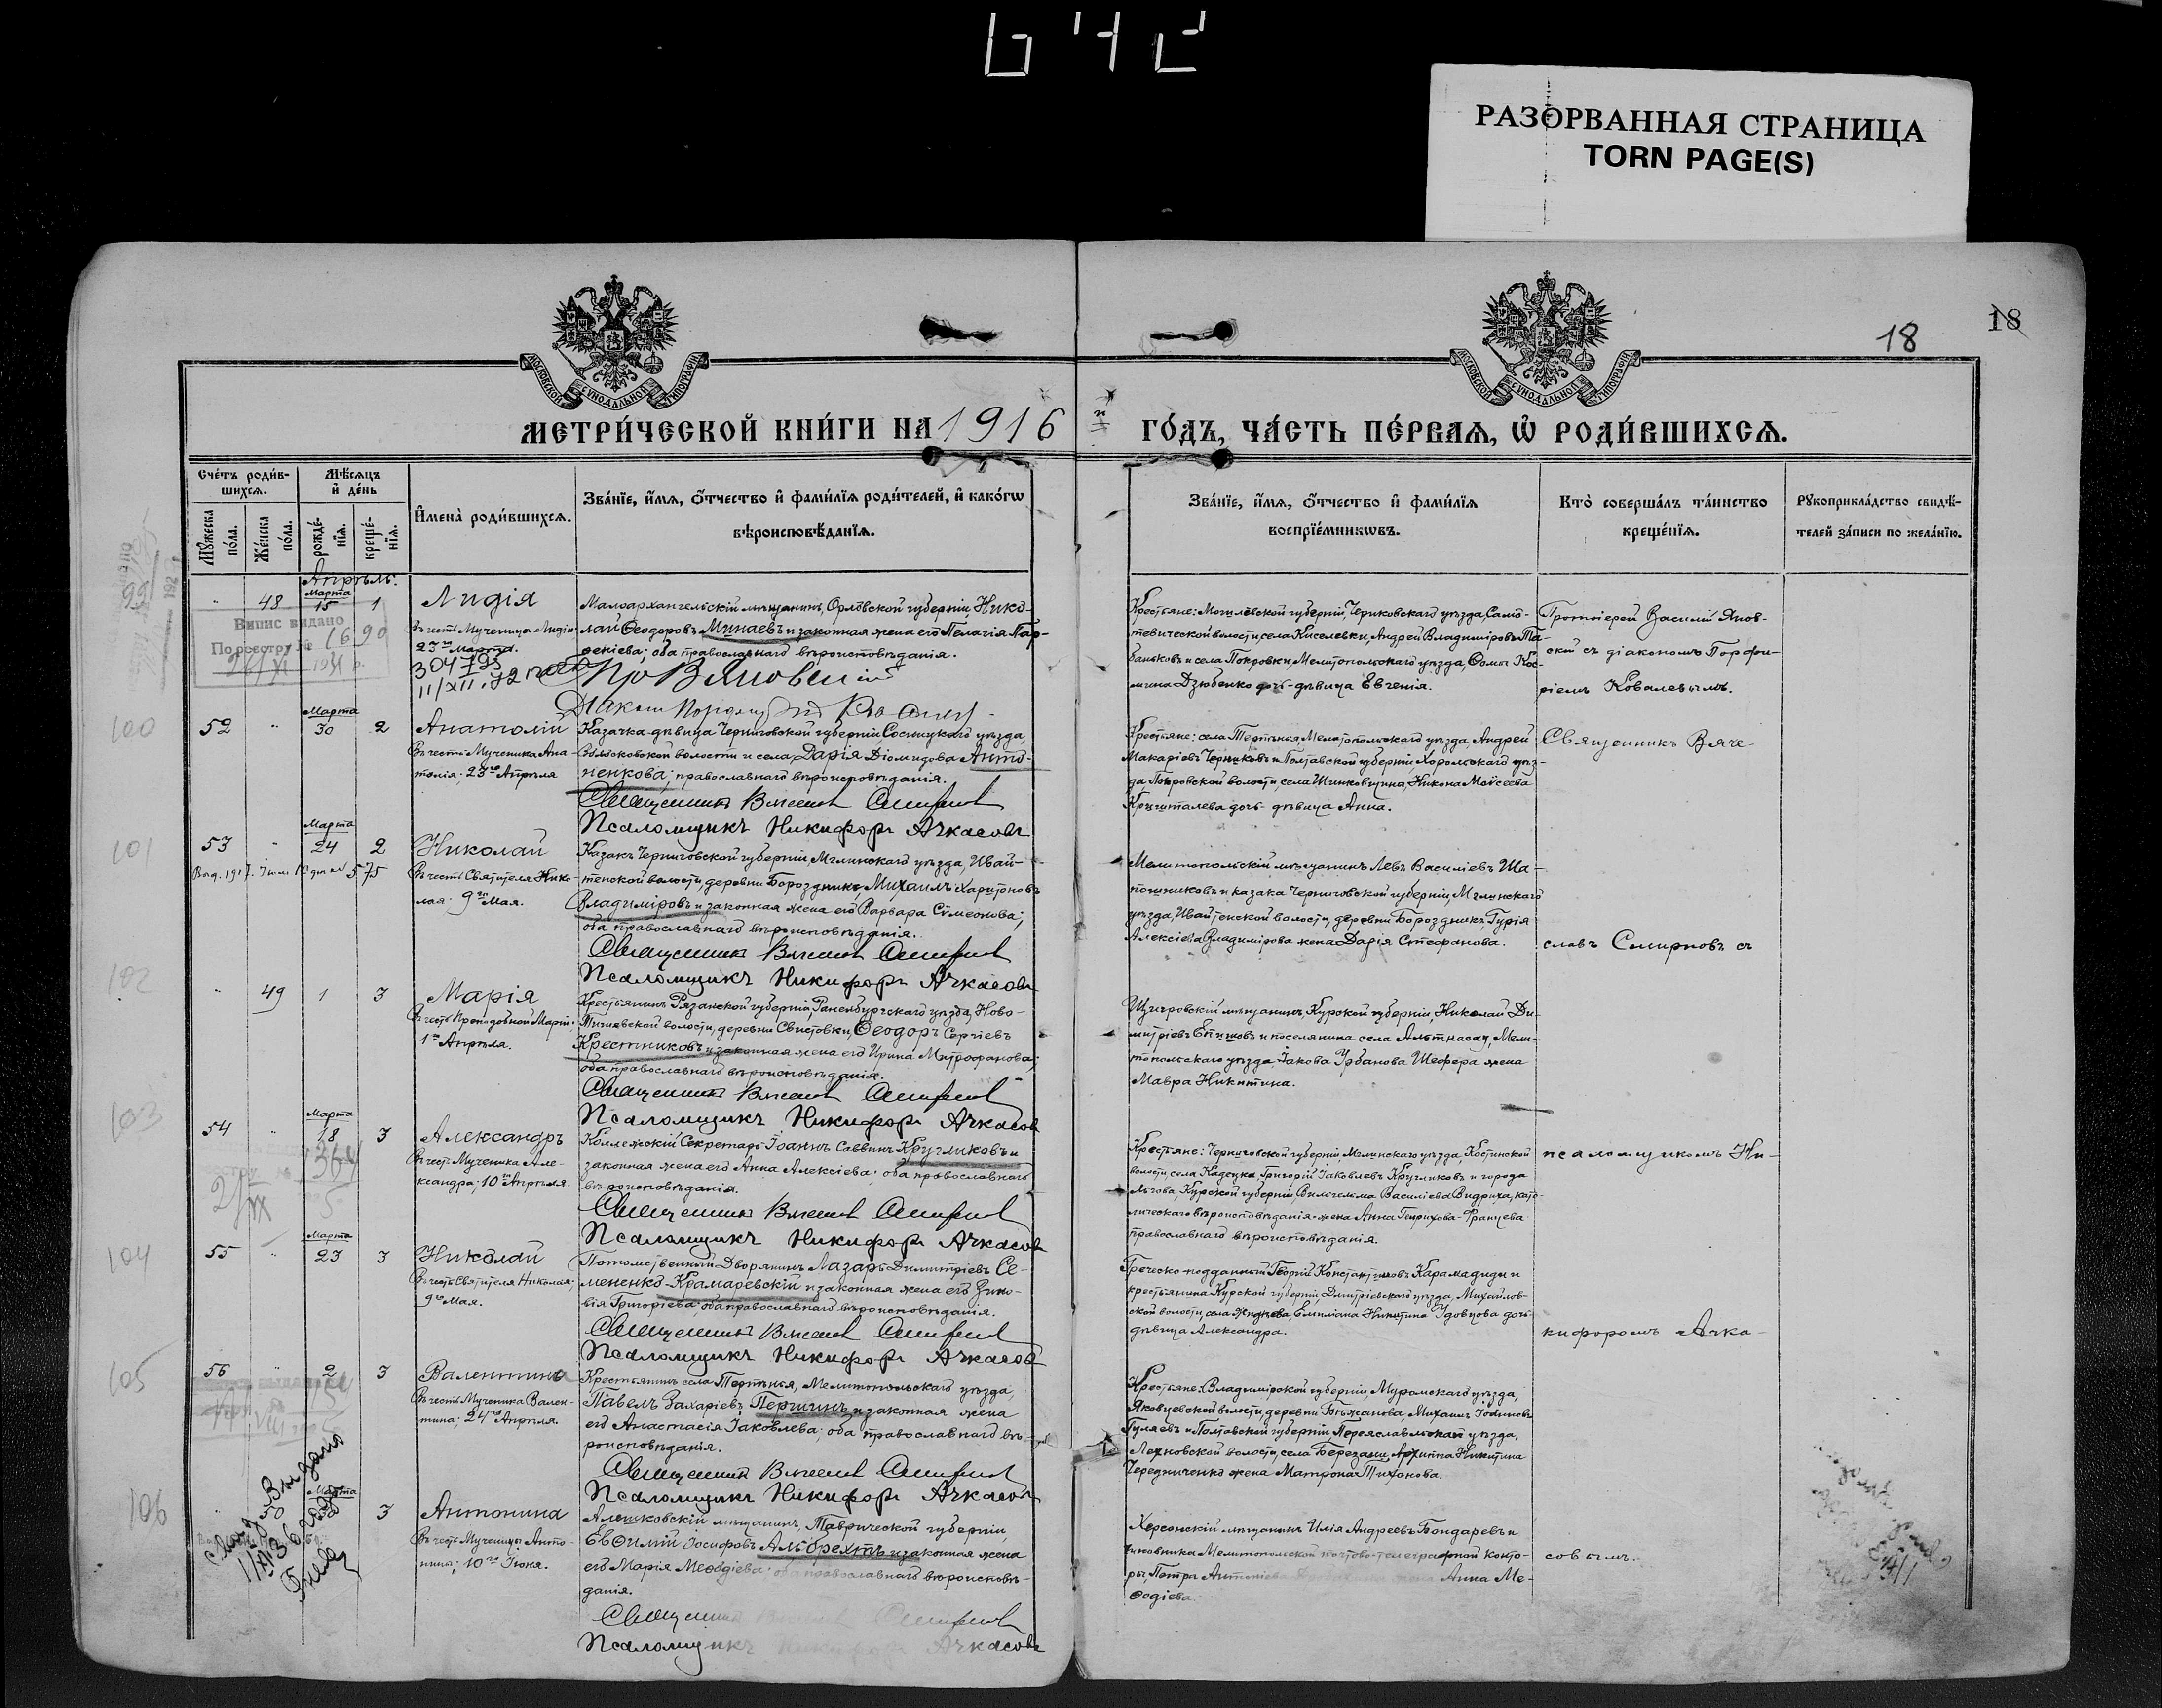 РАЗОРВАННАЯ СТРАНИЦА
TORN PAGE(S)
18
18
МОСКОВСКОЙ СУНОДАЛЬНОЙ ТИПОГРАФІИ
МОСКОВСКОЙ СУНОДАЛЬНОЙ ТИПОГРАФІИ
МЕТРИ́ЧЕСКОЙ КНИ́ГИ НА 1916 й ГО́ДЪ, ЧА́СТЬ ПЕ́РВАЯ, Ѿ РОДИ́ВШИХСЯ.
Сче́тъ роди́в-
шихся.
Мѣ́сяцъ
и҆ де́нь
Му́жеска
по́ла.
Же́нска
по́ла.
рожде́-
нїѧ.
креще́-
нїѧ.
И҆мена̀ роди́вшихся.
Зва́нїе, и҆́мя, ѻ҆́тчество и҆ фами́лїѧ роди́телей, и҆ како́гѡ
вѣроисповѣ́данїѧ.
Зва́нїе, и҆́мя, ѻ҆́тчество и҆ фами́лїѧ
воспрїе́мникѡвъ.
Кто̀ соверша́лъ та́инство
креще́нїѧ.
Рꙋкоприкла́дство свидѣ́-
телей за́писи по жела́нїю.
Апрѣль.
99
48
Марта
15
1
Лидія
Въ честь Мученицы Лидіи;
23го Марта.
Випис видано
По реестру № 1690
304793
Малоархангельскій мѣщанинъ, Орловской губерніи, Нико-
лай Ѳеодоровъ Минаевъ и законная жена его Пелагія Пар-
ѳеніева; оба православнаго вѣроисповѣданія.
Крестьяне: Могилевской губерніи, Чериковскаго уѣзда, Само-
тевической волости, села Киселевки, Андрей Владиміровъ Та-
баньковъ и села Покровки, Мелитопольскаго уѣзда, Ѳомы Кос-
мина Дзюбенко дочь-дѣвица Евгенія.
Протоіерей Василій Янов-
скій съ діакономъ Порфи-
ріемъ Ковалевымъ.
100
52
Марта
30
2
Анатолій
Въ честь Мученика Ана-
толія; 23го Апрѣля
Казачка-дѣвица Черниговской губерніи Сосницкаго уѣзда
волости и села Дарія Діомидова Анто-
ненкова; православнаго вѣроисповѣданія.
Священникъ Вячеслав Смирнов
Псаломщикъ Никифоръ Ачкасовъ
Крестьяне: села Терпѣнья, Мелитопольскаго уѣзда, Андрей
Макаріевъ Черниковъ и Полтавской губерніи, Хорольскаго уѣз-
да, Покровской волости, села Никона Моѵсеева
дочь-дѣвица Анна.
Священникъ Вяче-
101
53
Марта
24
2
Николай
Въ честь Святителя Нико-
лая; 9го Мая.
Казакъ Черниговской губерніи, Мглинскаго уѣзда, Ивай-
тенской волости, деревни Бороздникъ, Михаилъ Харитоновъ
Владиміровъ и законная жена его Варвара Сѵмеонова;
оба православнаго вѣроисповѣданія.
Священникъ Вячеслав Смирнов
Псаломщикъ Никифоръ Ачкасовъ
Мелитопольскій мѣщанинъ Левъ Василіевъ Ша-
пошниковъ и казака Черниговской губерніи, Мглинскаго
уѣзда, Ивайтенской волости, деревни Бороздникъ, Гурія
Алексіева Владимірова жена Дарія Стефанова.
славъ Смирновъ съ
102
49
1
3
Марія
Въ честь Преподобной Маріи;
1го Апрѣля.
Крестьянинъ Рязанской губерніи, Раненбургскаго уѣзда, Ново-
Тишевской волости, деревни Свистовки, Ѳеодоръ Сергіевъ
Крестниковъ и законная жена его Ирина Митрофанова;
оба православнаго вѣроисповѣданія.
Священникъ Вячеслав Смирнов
Псаломщикъ Никифоръ Ачкасовъ
Щигровскій мѣщанинъ, Курской губерніи, Николай Ди-
митріевъ и поселянина села Альтнассау, Мели-
топольскаго уѣзда Іакова Урбанова Шефера жена
Мавра Никитина.
103
54
Марта
18
3
Александръ
Въ честь Мученика Але-
ксандра; 10го Апрѣля.
Коллежскій Секретарь Іоаннъ Саввинъ Кругликовъ и
законная жена его Анна Алексіева; оба православнаго
вѣроисповѣданія.
Священникъ Вячеслав Смирнов
Псаломщикъ Никифоръ Ачкасов
Крестьяне: Черниговской губерніи, Мглинскаго уѣзда, Костинской
волости, села Кадецка, Григорій Іаковлевъ Кругликовъ и города
Льгова, Курской губерніи, Вильгельма Василіева Видриха, като-
лическаго вѣроисповѣданія жена Анна Генрихова-Францева
православнаго вѣроисповѣданія.
псаломщикомъ Ни-
104
55
Марта
23
3
Николай
Въ честь Святителя Николая;
9го Мая.
Потомственный Дворянинъ Лазарь Димитріевъ Се-
мененко-Крамаревскій и законная жена его Зино-
вія Григоріева; оба православнаго вѣроисповѣданія.
Священникъ Вячеслав Смирнов
Псаломщикъ Никифоръ Ачкасов
Греческо-подданный Георгій Константиновъ Карамадиди и
крестьянина Курской губерніи, Дмитріевскаго уѣзда, Михайлов-
ской волости, села Емиліана Никитина Удовцова дочь-
дѣвица Александра.
кифоромъ Ачка-
105
56
2
3
Валентинъ
Въ честь Мученика Вален-
тина; 24го Апрѣля.
Крестьянинъ села Терпѣнья, Мелитопольскаго уѣзда,
Павелъ Захаріевъ Першинъ и законная жена
его Анастасія Іаковлева; оба православнаго вѣ-
роисповѣданія.
Священникъ Вячеслав Смирнов
Псаломщикъ Никифоръ Ачкасовъ
Крестьяне: Владимірской губерніи, Муромскаго уѣзда,
Яковцевской волости, деревни Бѣжанова, Михаилъ Іоанновъ
Гуляевъ и Полтавской губерніи, Переяславльскаго уѣзда,
волости, села Березани, Архиппа Никитина
Чередниченко жена Матрона Тихонова.
106
Марта
3
Антонина
Въ честь Мученицы Анто-
нины; 10го Іюня.
Алешковскій мѣщанинъ, Таврической губерніи,
Евѳимій Іосифовъ Альбрехтъ и законная жена
его Марія Меѳодіева; оба православнаго вѣроисповѣ-
данія.
Священникъ Вячеслав Смирнов
Псаломщикъ Никифоръ Ачкасовъ
Херсонскій мѣщанинъ Илія Андреевъ Бондаревъ и
чиновника Мелитопольской почтово-телеграфной конто-
ры, Петра Антоніева жена Анна Ме-
ѳодіева.
совымъ.